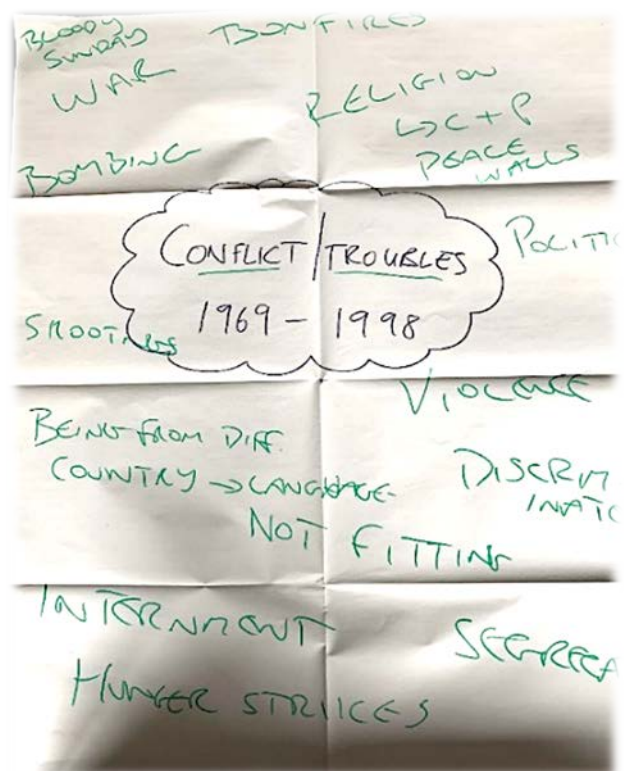 BLOODY
SUNDAY
BONFIRES
WAR
RELIGION
↳ C + P
PEACE
WALLS
BOMBING
CONFLICT/TROUBLES
1969 - 1998
POLITIC
SHOOTINGS
VIOLENCE
BEING FROM DIFF.
COUNTRY → LANGUAGE
NOT FITTING
DISCRIM
INATIO
INTERNMENT
SEGREGA
HUNGER STRIKES